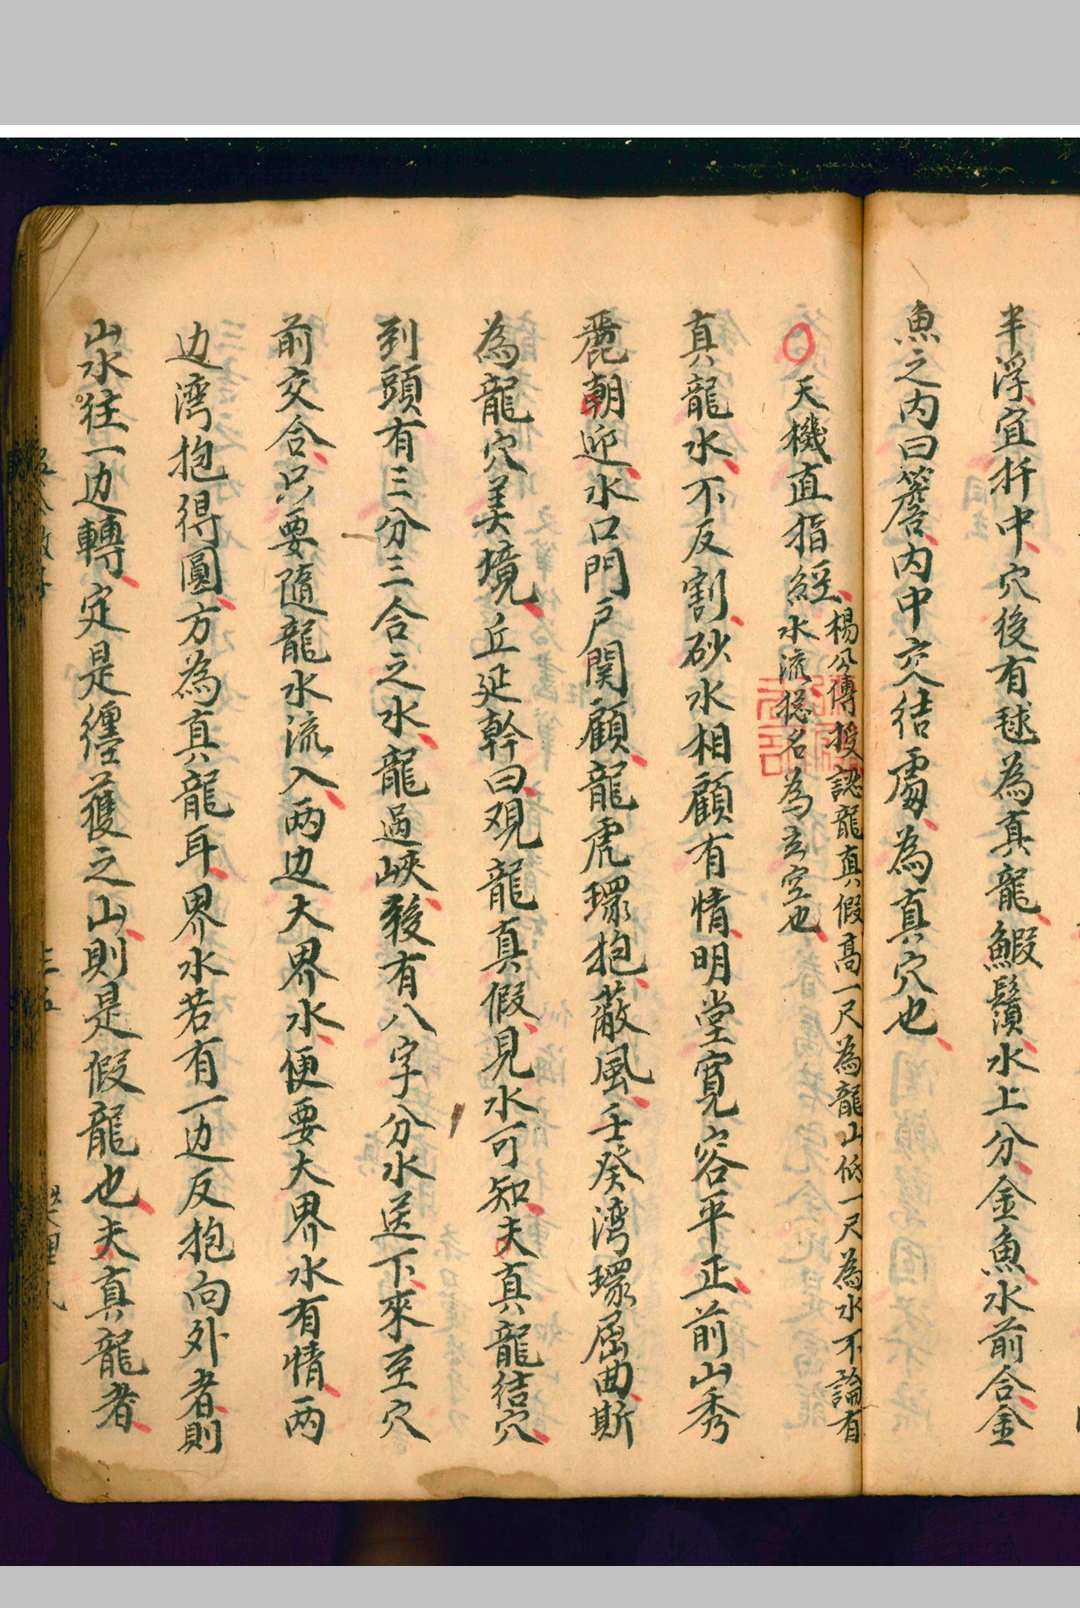 半浮宜扦中穴後有毬為真龍鰕鬚水上分金魚水前合金
魚之内曰簷内中交结處為真穴也
○天機直指經
楊公傳授認龍真假高一尺為龍山低一尺為水不論有
水流總名為玄空也
真龍水不反割砂水相顧有情明堂寬容平正前山秀
麗朝迎水口門户関顧龍虎環抱蔽風壬癸湾環屈曲斯
為龍穴美境丘延幹曰观龍真假見水可知夫真龍结穴
到頭有三分三合之水龍過峽後有八字分水送下來至穴
前交合只要隨龍水流入两边大界水便要大界水有情两
边湾抱得圓方為真龍耳界水若有一边反抱向外者則
山水往一边轉定是纏護之山則是假龍也夫真龍者